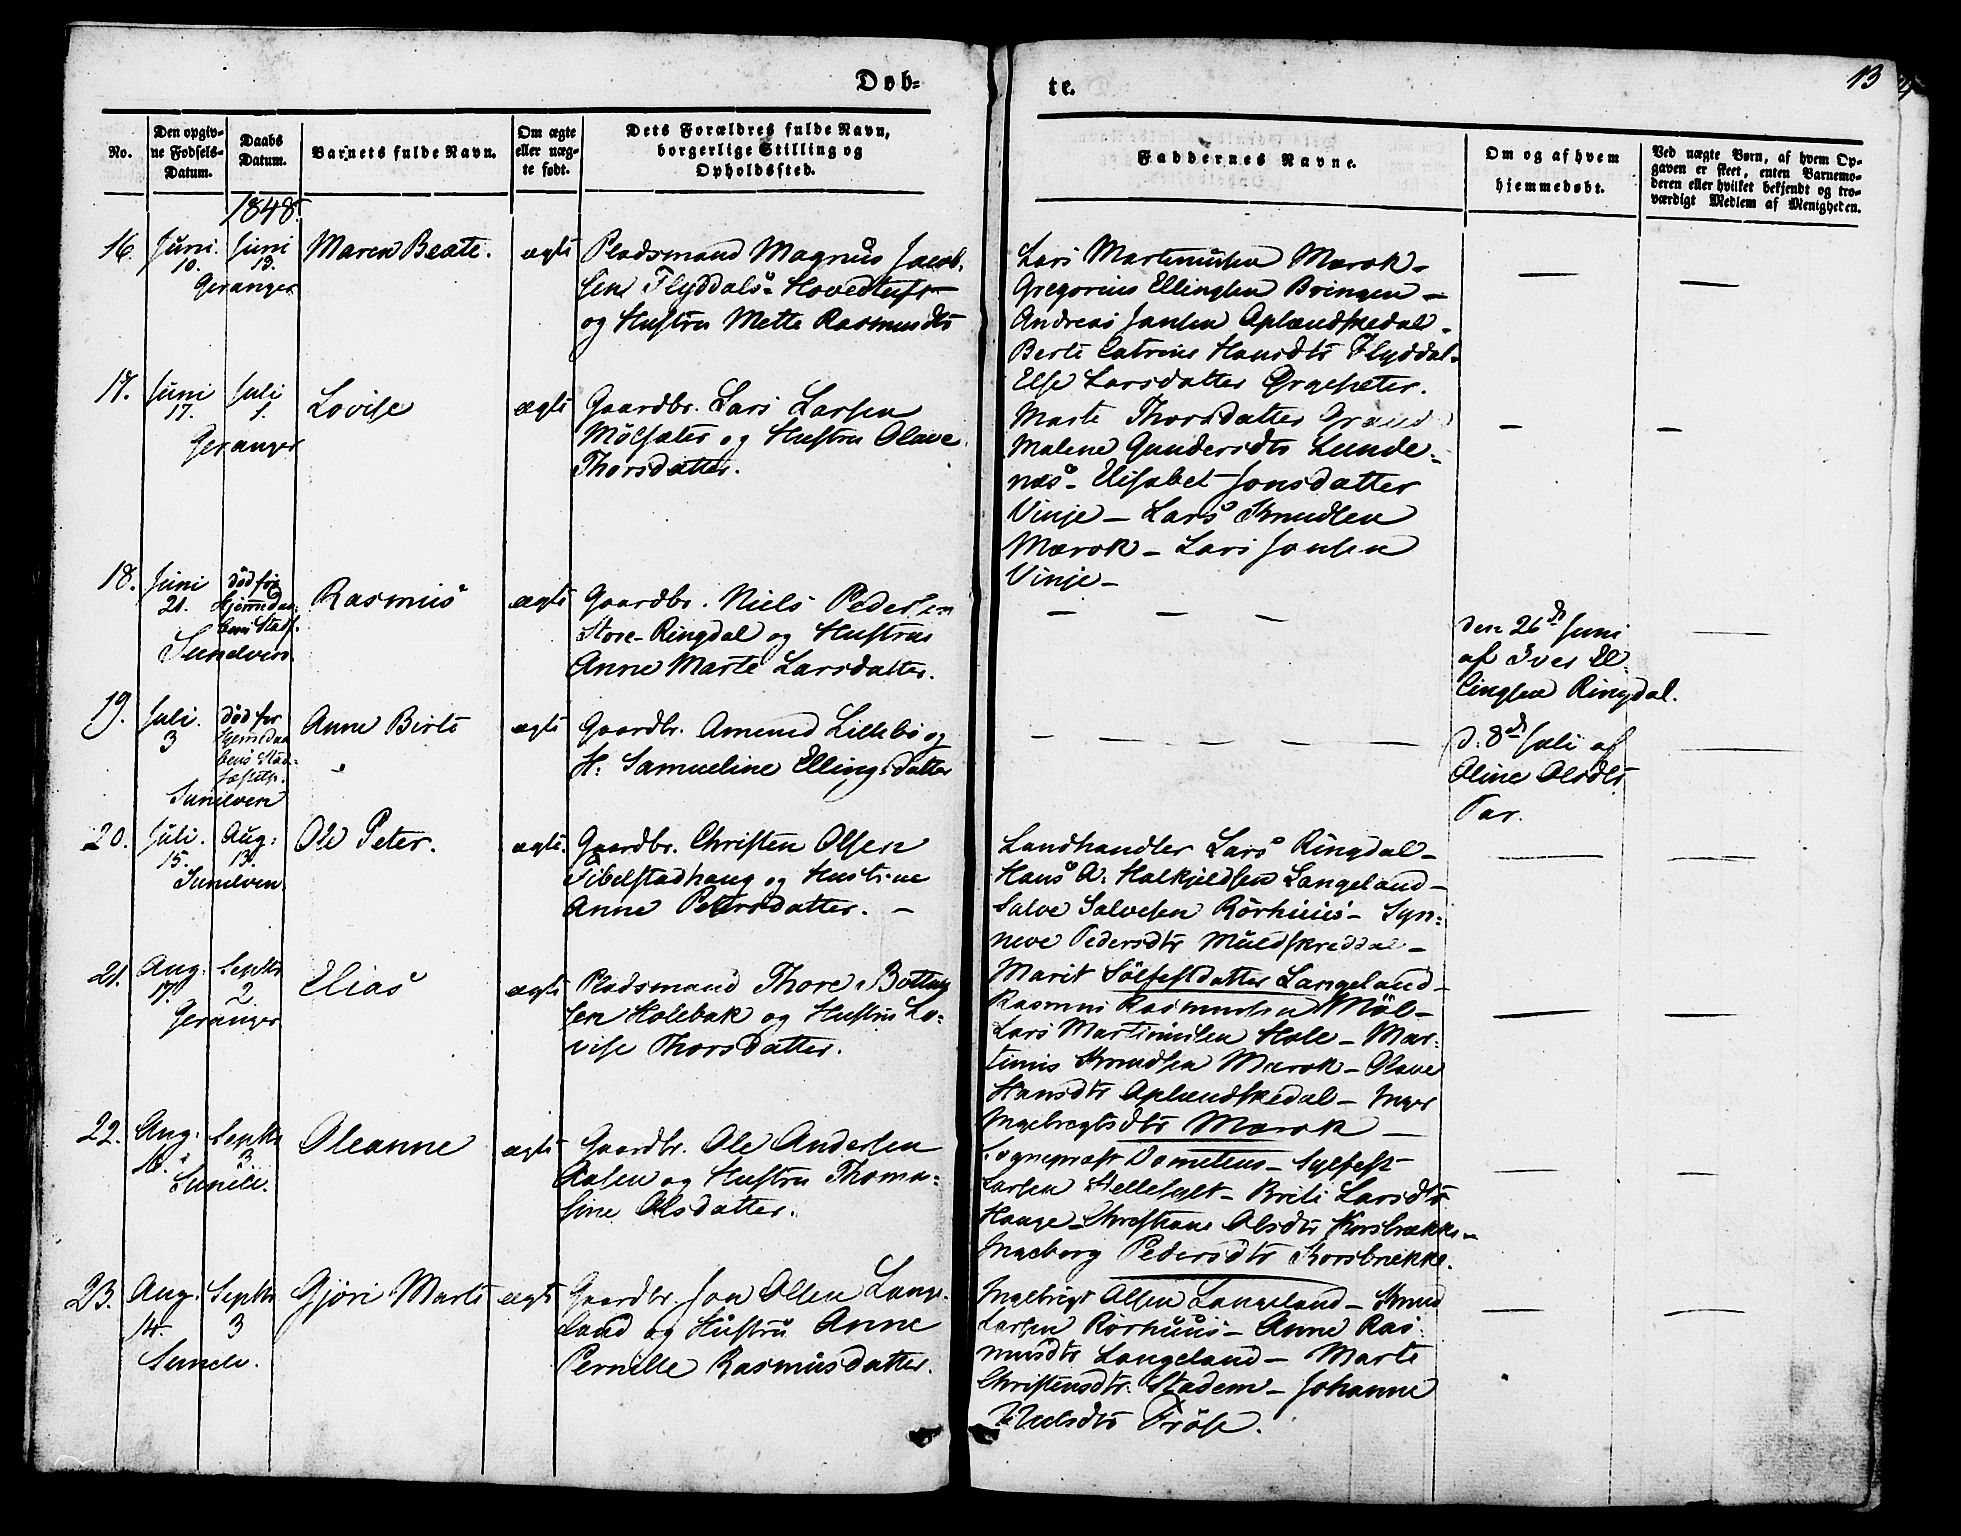 Døb=
te.
13
No.
Den opgiv=
ne Fødsels=
Datum.
Daabs
Datum.
Barnets fulde Navn.
Om ægte
eller uæg=
te født.
Dets Forældres fulde Navn,
borgerlige Stilling og
Opholdssted.
Faddernes Navne.
Om og af hvem
hjemmedøbt.
Ved uægte Børn, af hvem Op=
gaven er skeet, enten Barnemo=
deren eller hvilket bekjendt og tro=
værdigt Medlem af Menigheden.
1848.
16. Juni 10. Juni 19. Maren Beate. ægte
Geranger
Pladsmand Magnus Jacob=
sen Flyddals- Hovedtuft
og Hustru Mette Rasmusdtr
Lars Martinusen Marok -
Gregorius Ellingsen Bringen -
Andreas Jansen Aplandskedal -
Berte Catrine Hansdtr Flyddal -
Else Larsdatter
17. Juni 17. Juli 1. Lovise ægte
Geranger
Gaardbr. Lars Larsen
Mølsæter og Hustru Olave
Thorsdatter.
Marte Thorsdatter Grand
Malene Gundersdtr Lunde=
næs - Elisabet Jonsdatter
Vinje - Lars Knudsen
Marok - Lars Jansen
Vinje -
18. Juni 21. død før
Hjemmedaa=
bens Stadf.
Sunelven
Rasmus ægte
Gaardbr. Niels Pedersen
Store-Ringdal og Hustru
Anne Marte Larsdatter.
den 26d Juni
af Iver El=
lingsen Ringdal.
19. Juli 3 død før
Hjemmedaa
bens Stad=
fæstelse.
Sunelven
Anne Birte ægte
Gaardbr. Amund Lillebø og
H: Samueline Ellingsdatter
d. 8d Juli af
Oline Olsdtr
20. Juli 15. Aug: 13. Ole Peter. ægte.
Sunelven
Gaardbr. Christen Olsen
Tibelstadhaug og Hustrue
Anne Petersdatter. -
Landhandler Lars Ringdal -
Hans A: Halkjeldsen Langeland -
Salve Salvesen Rørhuus - Syn=
neve Pedersdtr Muldskreddal -
Marit Sølfestdatter Langeland -
21. Aug. 17. Septbr 2. Elias ægte
Geranger
Pladsmand Thore Botten
sen Holebak og Hustru Lo=
vise Thorsdatter.
Rasmus Rasmussen Møl -
Lars Martinusen Hole - Mar=
tinus Knudsen Marok - Olave
Hansdtr Aplandskedal - Inger
Ingebregtsdtr Marok -
22. Aug. Septbr 3 Oleanne ægte
Sunelv.
Gaardbr. Ole Andersen
Aasen og Hustru Thoma=
sine Olsdatter.
Sognepræst Dometius - Sylfest
Larsen Hellesylt - Brite Larsdtr
Hauge - Christiane Olsdtr Korsbrække -
Ingeborg Pedersdtr Korsbrække.
23. Aug. 14. Septbr 3 Gjøri Marte ægte
Sunelv.
Gaardbr. Jon Olsen Lange=
land og Hustru Anne
Pernille Rasmusdatter.
Ingebrigt Olsen Langeland - Knud
Larsen Rørhuus - Anne Ras=
musdtr Langeland - Marte
Christensdtr. Stadem - Johanne
Nielsdtr Frøse.